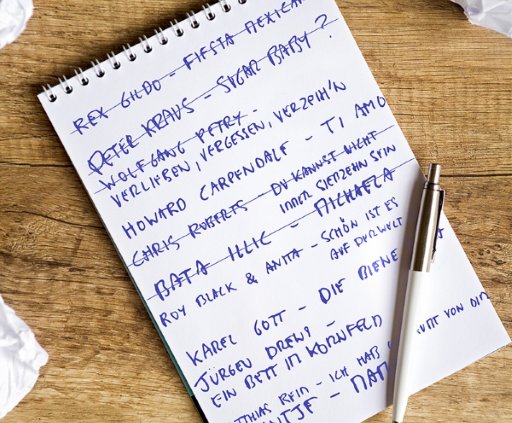 REX GILDO - FIESTA MEXICANA
PETER KRAUS - SUGAR BABY ?
WOLFGANG PETRY -
VERLIEBEN, VERGESSEN, VERZEIH'N
HOWARD CARPENDALE - TI AMO
CHRIS ROBERTS DU KANNST NICHT
IMMER SIEBZEHN SEIN
BATA ILLIC - MICHAELA
ROY BLACK & ANITA - SCHÖN IST ES
AUF DER WELT
KAREL GOTT - DIE BIENE
JÜRGEN DREWS -
EIN BETT IM KORNFELD
REIM - ICH HAB VON DIR